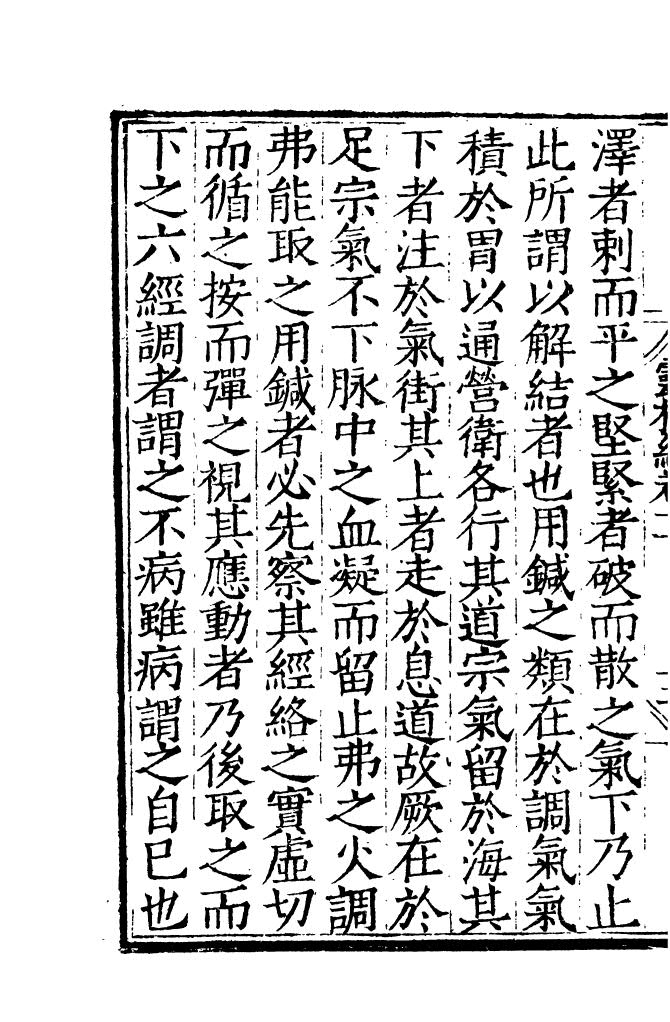 澤者刺而平之堅緊者破而散之氣下乃止
此所謂以解結者也用鍼之類在於調氣氣
積於胃以通營衛各行其道宗氣留於海其
下者注於氣街其上者走於息道故厥在於
足宗氣不下脉中之血凝而留止弗之火調
弗能取之用鍼者必先察其經絡之實虛切
而循之按而彈之視其應動者乃後取之而
下之六經調者謂之不病雖病謂之自巳也